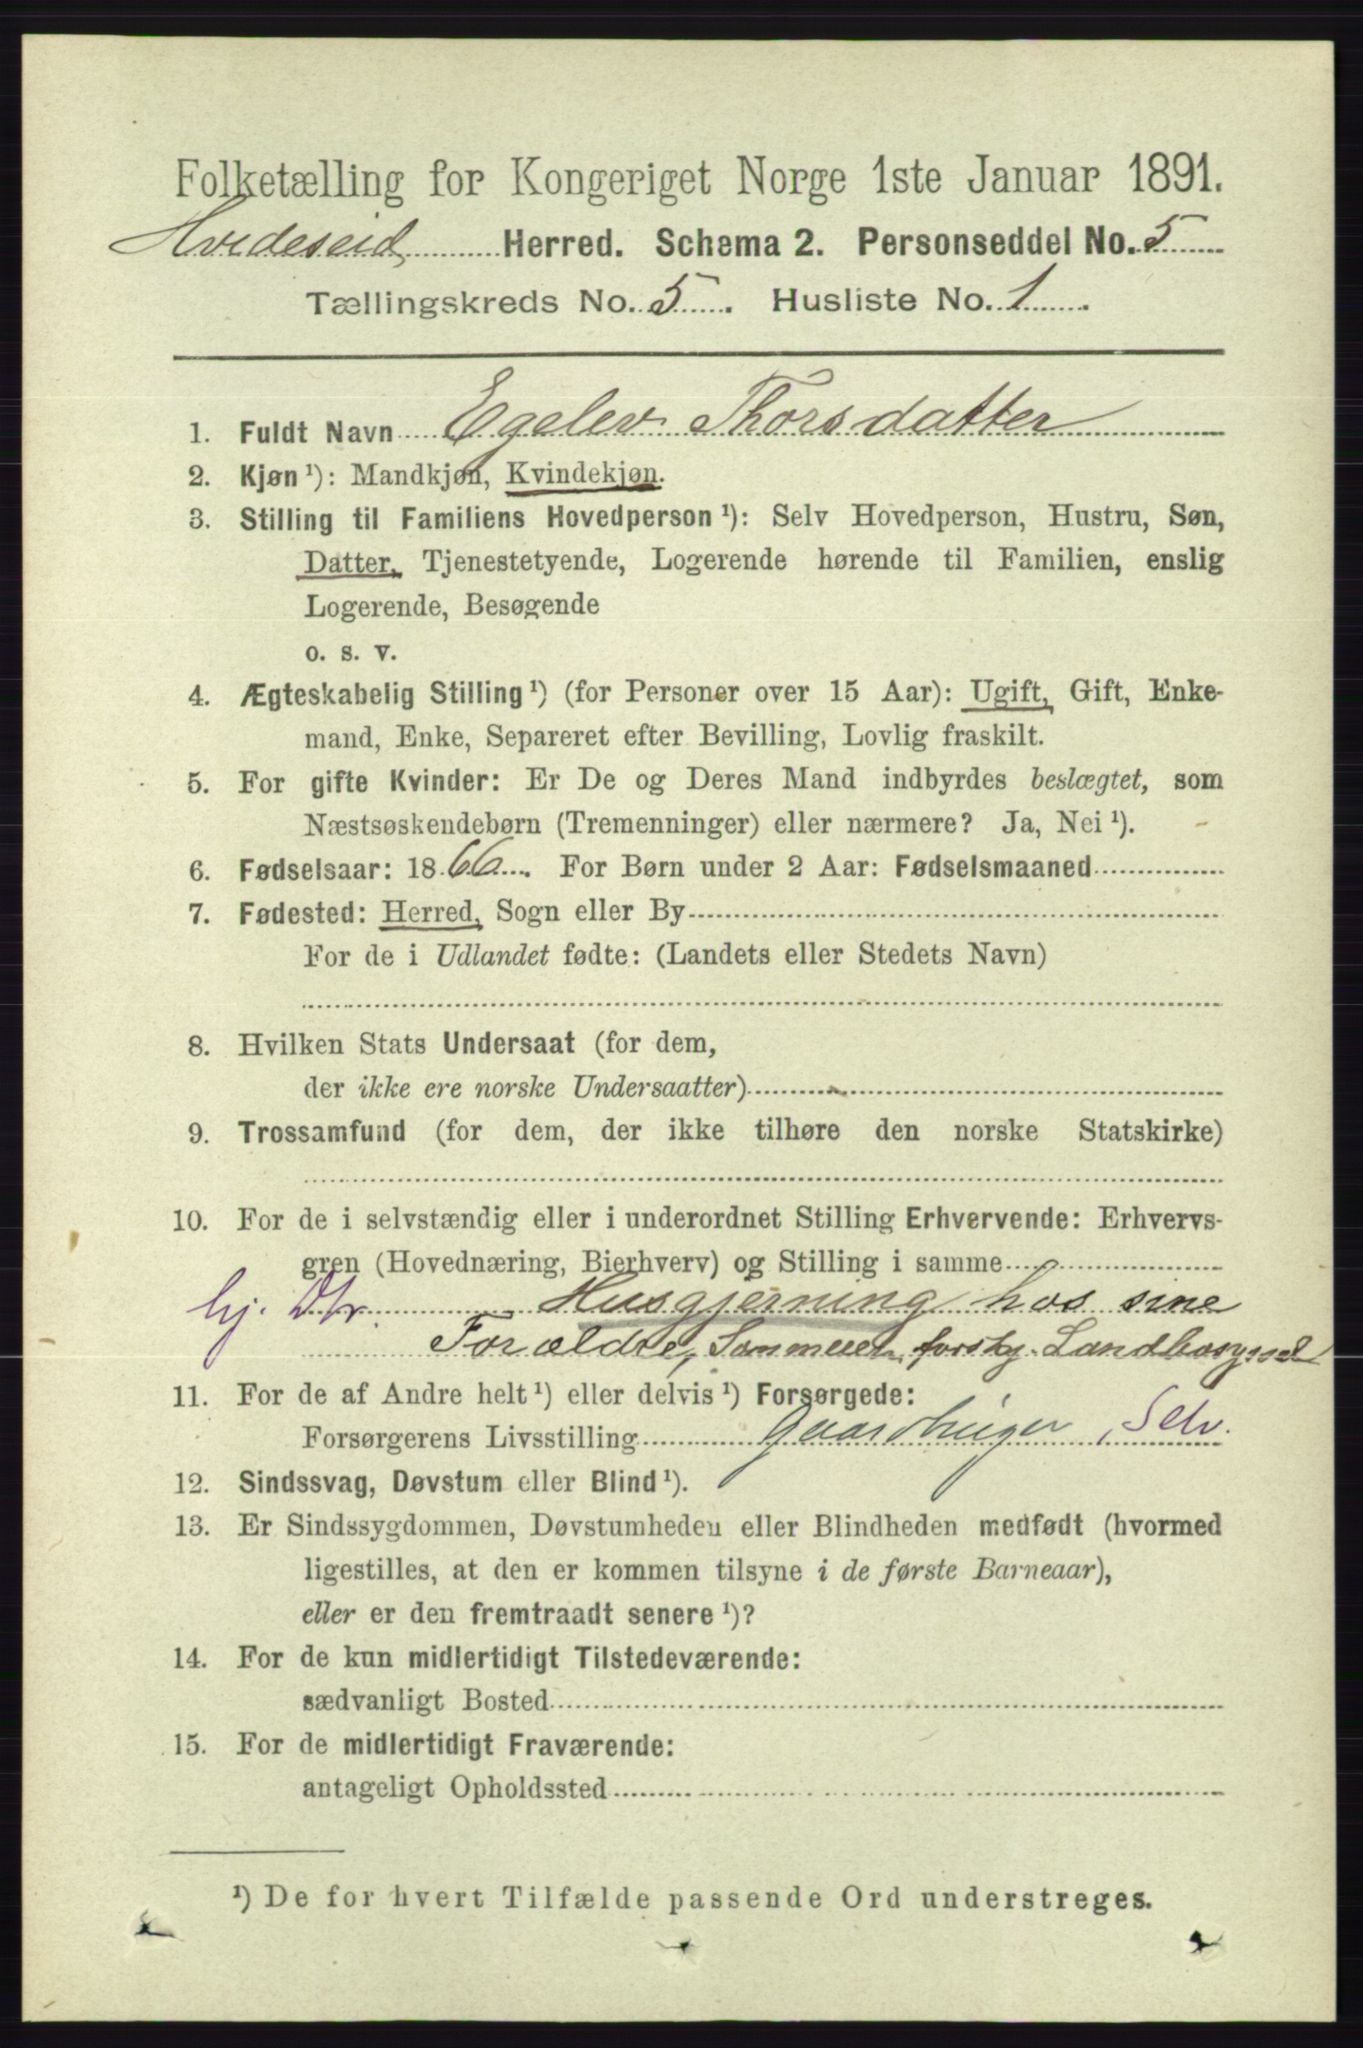 Folketælling for Kongeriget Norge 1ste Januar 1891.
Hvideseid Herred. Schema 2. Personseddel No. 5
Tællingskreds No. 5. Husliste No. 1.
1. Fuldt Navn Egelev Thorsdatter
2. Kjøn ¹): Mandkjøn, Kvindekjøn.
3. Stilling til Familiens Hovedperson ¹): Selv Hovedperson, Hustru, Søn,
Datter, Tjenestetyende, Logerende hørende til Familien, enslig
Logerende, Besøgende
o. s. v.
4. Ægteskabelig Stilling ¹) (for Personer over 15 Aar): Ugift, Gift, Enke-
mand, Enke, Separeret efter Bevilling, Lovlig fraskilt.
5. For gifte Kvinder: Er De og Deres Mand indbyrdes beslægtet, som
Næstsøskendebørn (Tremenninger) eller nærmere? Ja, Nei ¹).
6. Fødselsaar: 1866. For Børn under 2 Aar: Fødselsmaaned
7. Fødested: Herred, Sogn eller By
For de i Udlandet fødte: (Landets eller Stedets Navn)
8. Hvilken Stats Undersaat (for dem,
der ikke ere norske Undersaatter)
9. Trossamfund (for dem, der ikke tilhøre den norske Statskirke)
10. For de i selvstændig eller i underordnet Stilling Erhvervende: Erhvervs-
gren (Hovednæring, Bierhverv) og Stilling i samme
hj. Dtr. Husgjerning hos sine
Forældre,
11. For de af Andre helt ¹) eller delvis ¹) Forsørgede:
Forsørgerens Livsstilling Gaardbruger, Selv.
12. Sindssvag, Døvstum eller Blind ¹).
13. Er Sindssygdommen, Døvstumheden eller Blindheden medfødt (hvormed
ligestilles, at den er kommen tilsyne i de første Barneaar),
eller er den fremtraadt senere ¹)?
14. For de kun midlertidigt Tilstedeværende:
sædvanligt Bosted
15. For de midlertidigt Fraværende:
antageligt Opholdssted
¹) De for hvert Tilfælde passende Ord understreges.